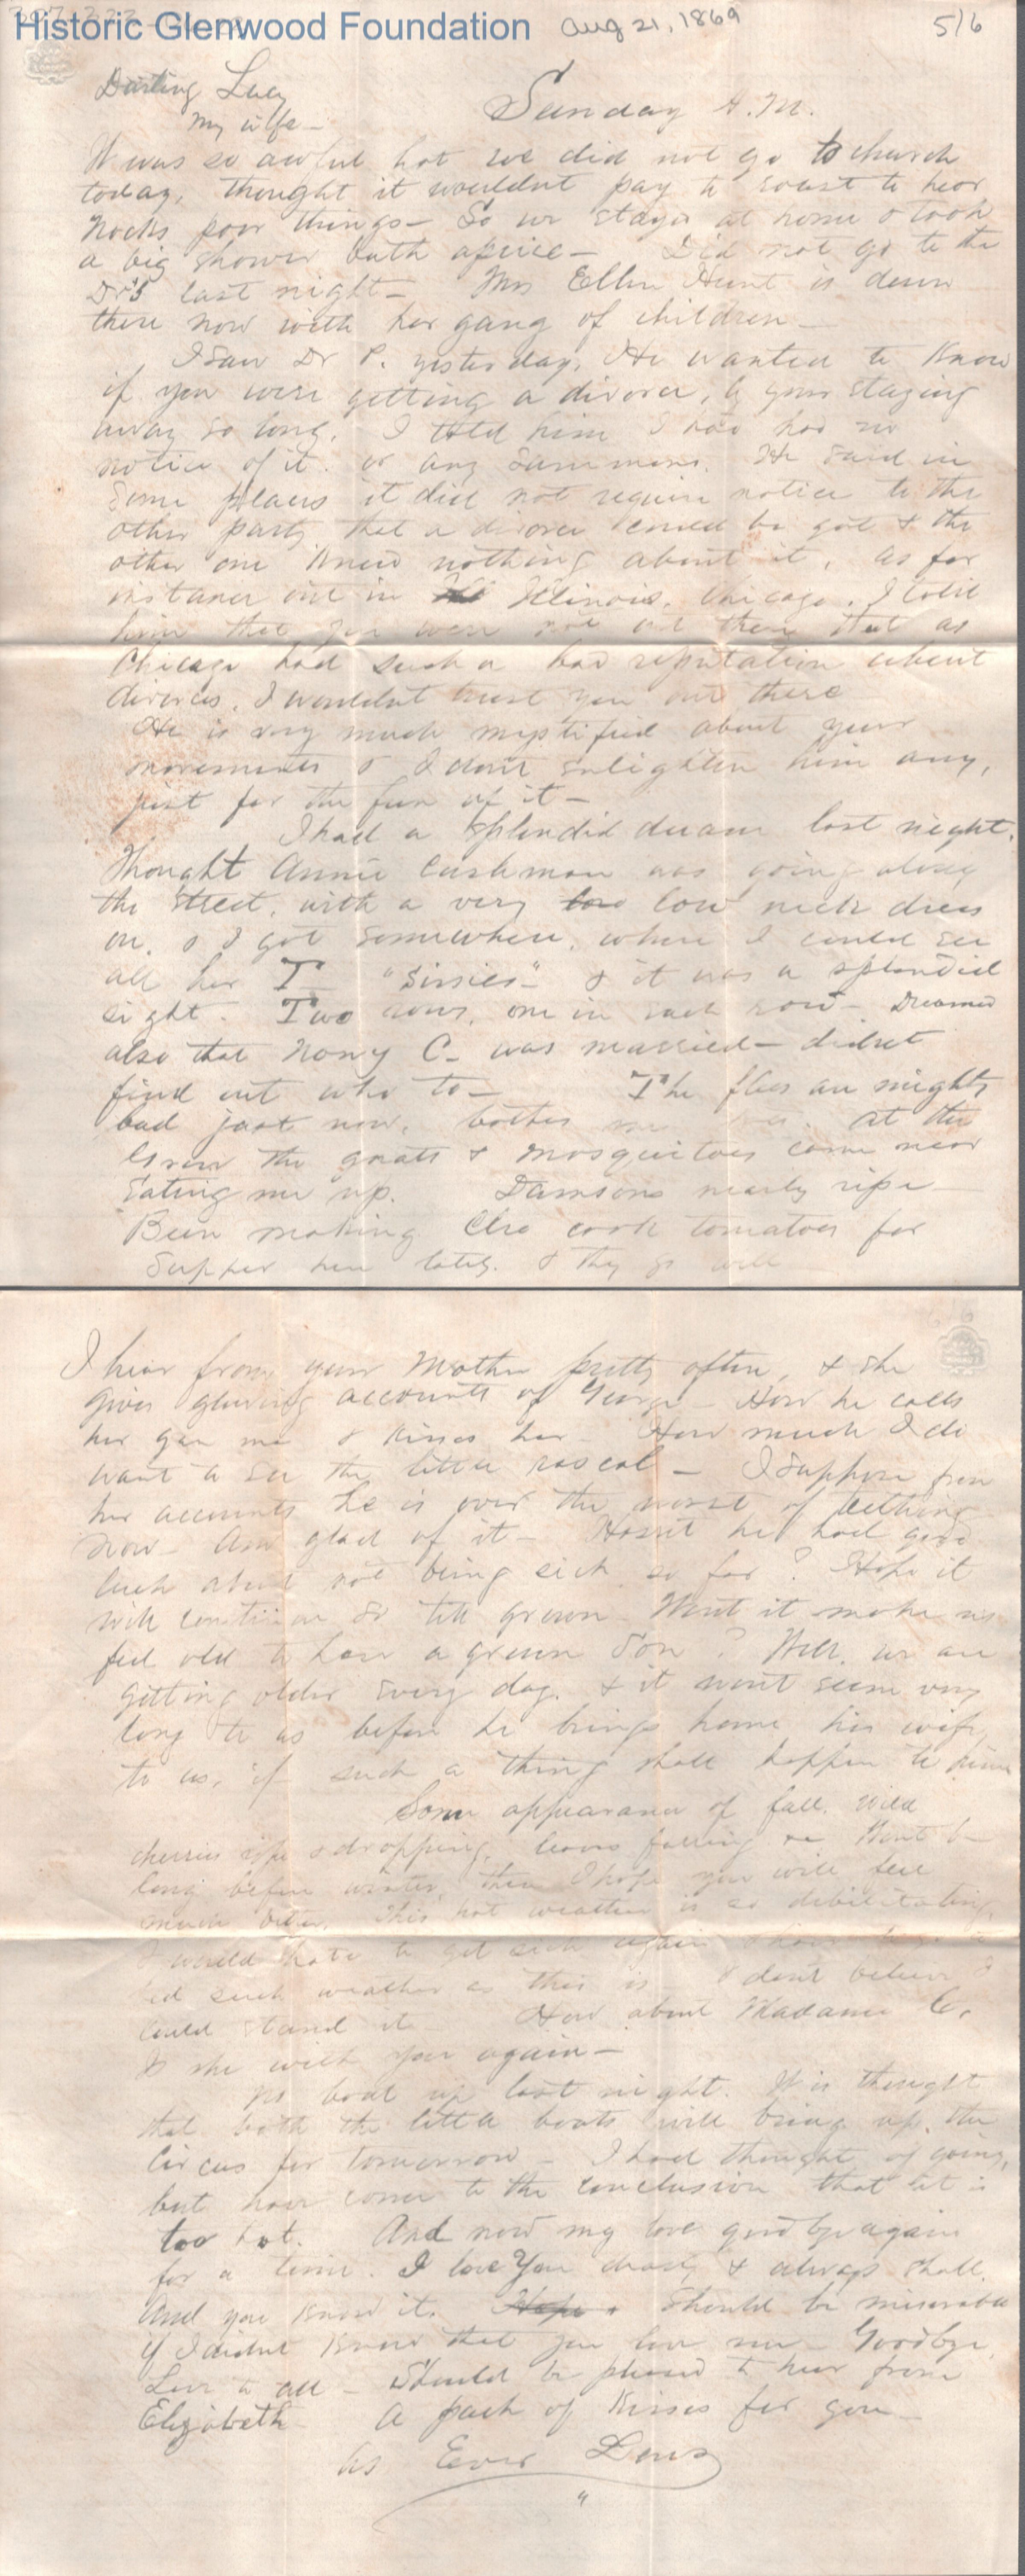 Historic Glenwood Foundation Aug 21, 1869 5/6
Darling Lucy
My wife – Sunday A.M.
It was so awful hot we did not go to church
today, thought it wouldnt pay to roast to hear
Nocks poor things – So we stayed at home & took
a big shower bath apiece – Did not go to the
Dr's last night – Mrs Ellen Hunt is down
there now with her gang of children –
I saw Dr P. yesterday, He wanted to know
if you were getting a divorce, by your staying
away so long. I told him I had had no
notice of it. or any summons. He said in
some places it did not require notice to the
other party that a divorce could be got & the
other one knew nothing about it, as for
instance out in Illinois. Chicago. I told
him that you were not out there that as
Chicago had such a bad reputation about
divorces, I wouldnt trust you out there
He is very much mystified about your
movements & I dont enlighten him any,
just for the fun of it –
I had a splendid dream last night.
Thought Annie Cushman was going along
the street, with a very low neck dress
on, & I got somewhere, where I could see
all her T "Sissies" & it was a splendid
sight. Two rows, one in each row – Dreamed
also that Nony C – was married – didnt
find out who to – The flies are mighty
bad just now, bother me at the
the gnats & mosquitoes came near
Eating me up. Damsons nearly ripe –
Been making Cleo cook tomatoes for
Supper here lately. & they go well
I hear from your Mother pretty often, & she
gives glowing accounts of George – How he calls
her Gan ma & kisses her – How much I do
want to see the little rascal – I suppose from
her accounts he is over the worst of teething
now – Am glad of it – Hasnt he had good
luck about not being sick so far? Hope it
will continue so till grown – Wont it make us
feel old to have a grown son? Well, we are
getting older every day. & it wont seem very
long to us before he brings home his wife
to us, if such a thing shall happen to him
Some appearance of fall. Wild
cherries ripe & dropping, leaves falling &c Wont be
long before winter, then I hope you will feel
much better. This hot weather is so debilitating,
I would hate to get sick again & have to
bed such weather as this is – I dont believe I
could stand it – How about Madame C.
Is she with you again –
No boat up last night. It is thought
that both the little boats will bring up the
Circus for tomorrow – I had thought of going,
but have come to the conclusion that it is
too hot. And now my love goodbye again
for a time. I love You dearly & always shall.
And you know it. Hope & Should be miserable
if I didnt know that you love me – Goodbye,
Love to all – Should be pleased to hear from
Elizabeth – A pack of kisses for you –
As Ever Lous